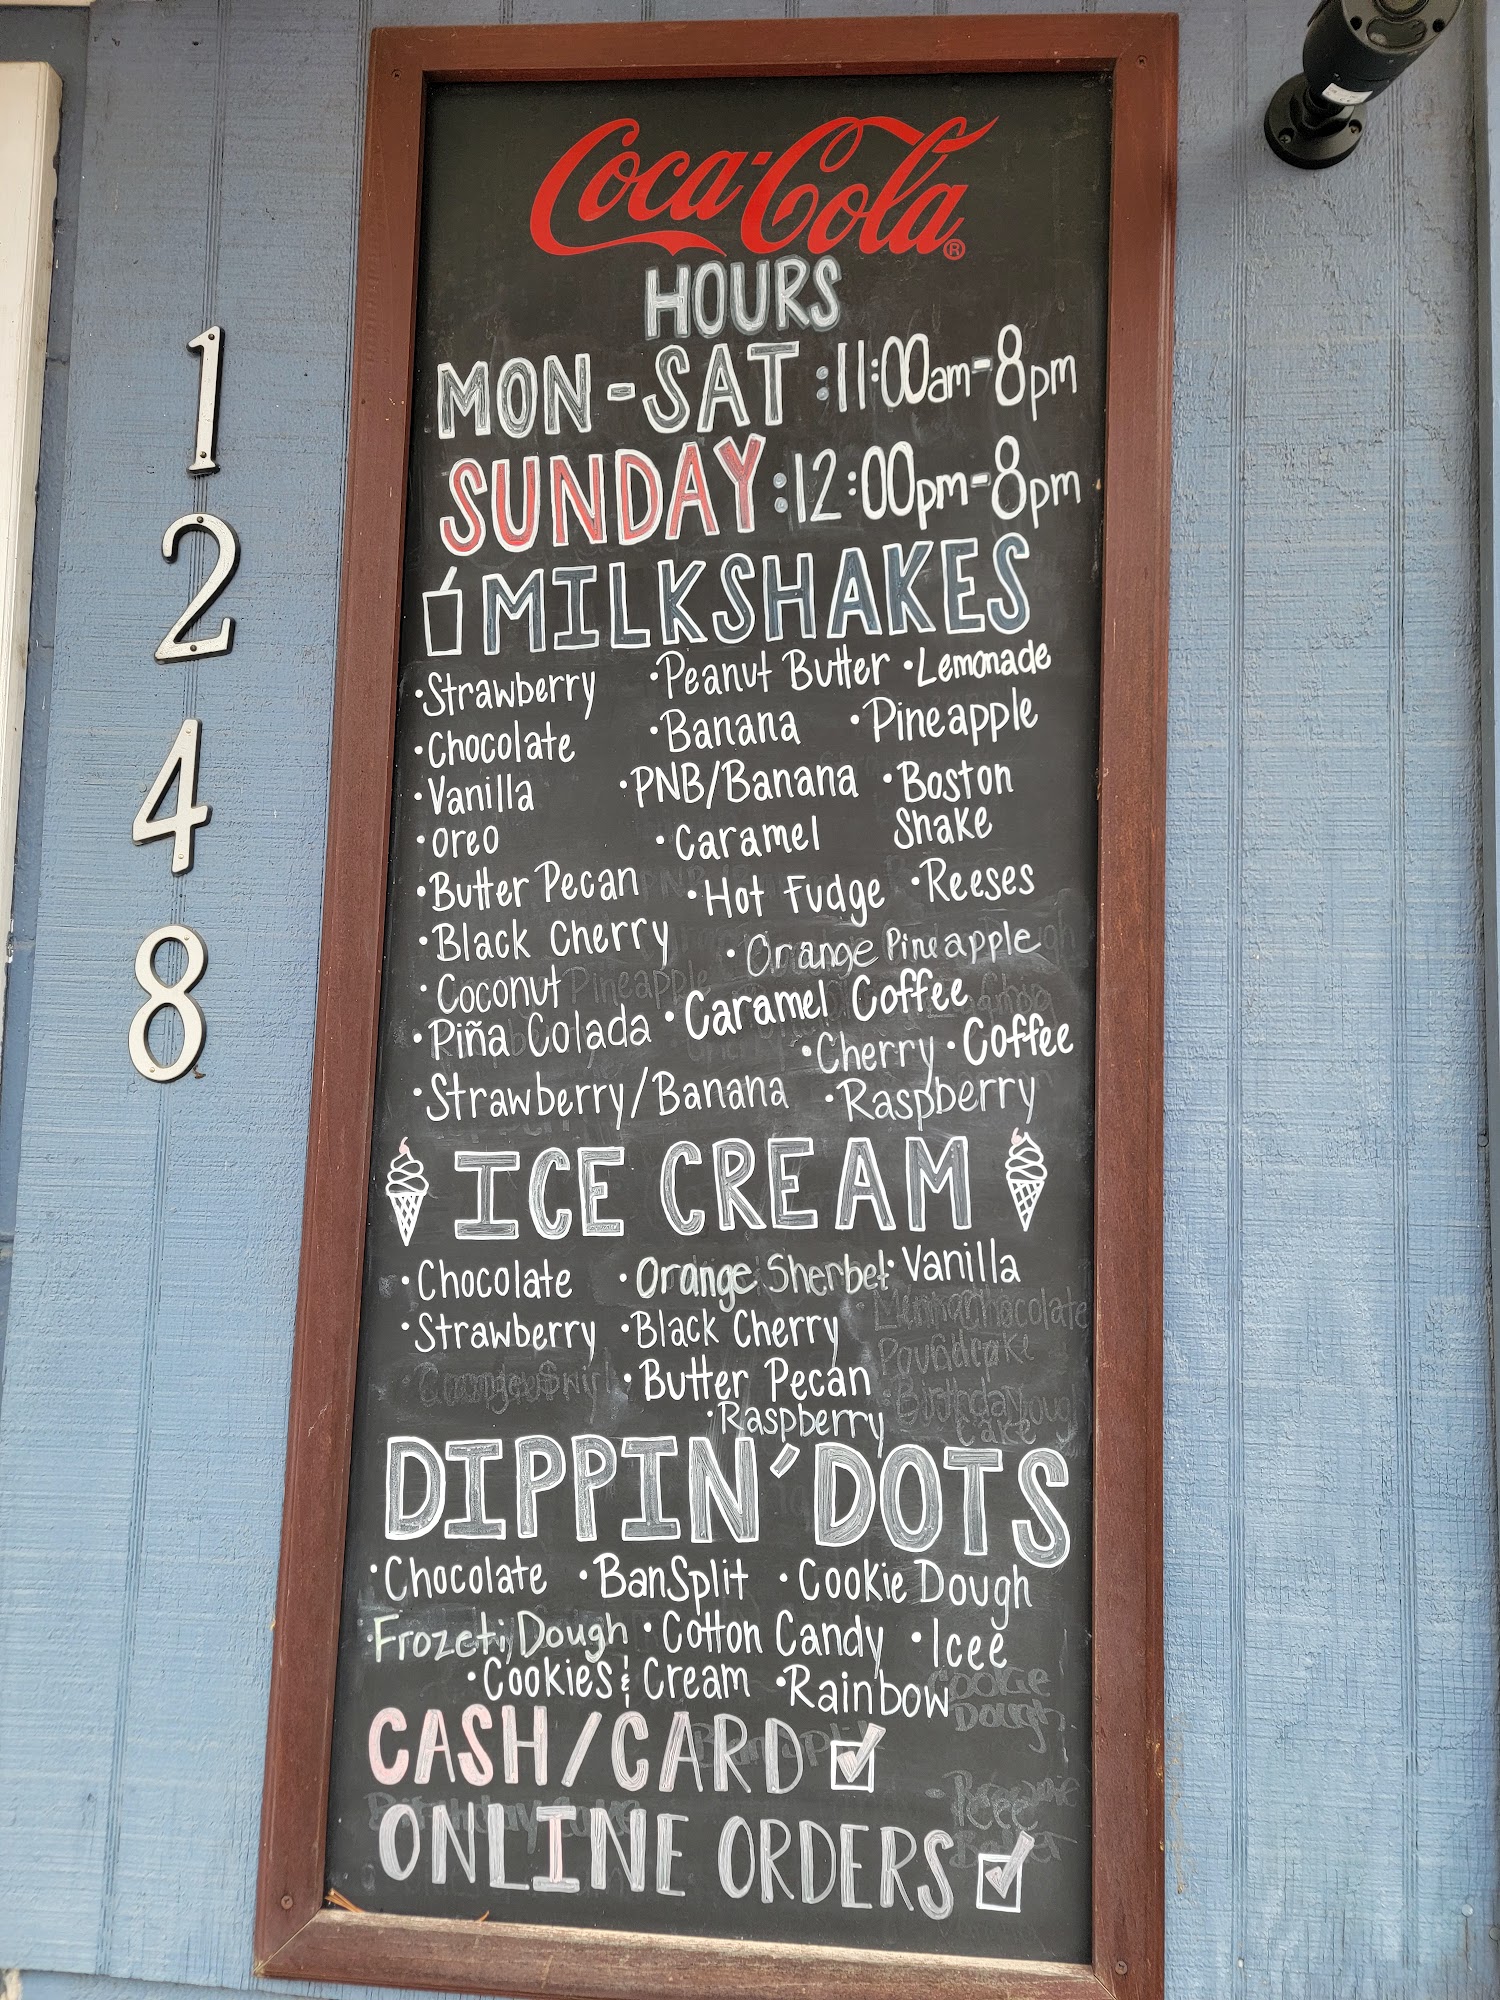 1
2
4
8
Coca-Cola®
HOURS
MON-SAT:11:00am-8pm
SUNDAY:12:00pm-8pm
MILKSHAKES
•Strawberry •Peanut Butter •Lemonade
•Chocolate •Banana •Pineapple
•Vanilla •PNB/Banana •Boston
•Oreo •Caramel Shake
•Butter Pecan •Hot Fudge •Reeses
•Black Cherry •Orange Pineapple
•Coconut Pineapple •Caramel Coffee
•Piña Colada •Cherry •Coffee
•Strawberry/Banana •Raspberry
ICE CREAM
•Chocolate •Orange Sherbet •Vanilla
•Strawberry •Black Cherry
•Butter Pecan
•Raspberry
DIPPIN' DOTS
•Chocolate •BanSplit •Cookie Dough
Dough •Cotton Candy •Icee
•Cookies & Cream •Rainbow
Cookie
Dough
CASH/CARD
ONLINE ORDERS